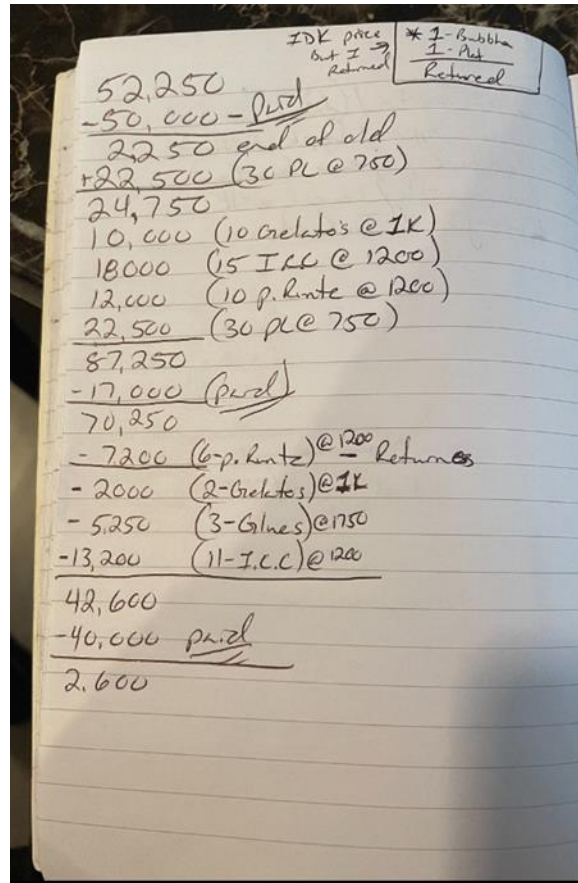 IDK price
But I →
Returned
* 1-Bubbha
1-Plat
Returned
52,250
-50,000 - Paid
2,250 end of old
+22,500 (30 PL @ 750)
24,750
10,000 (10 Gelato's @ 1K)
18000 (15 ICC @ 1200)
12,000 (10 p. Runtz @ 1200)
22,500 (30 PL @ 750)
87,250
-17,000 (paid)
70,250
- 7200 (6-p. Runtz) @ 1200 - Returnes
- 2000 (2-Gelatos) @ 1K
- 5,250 (3-Glues) @ 1750
-13,200 (11-I.C.C) @ 1200
42,600
-40,000 paid
2.600